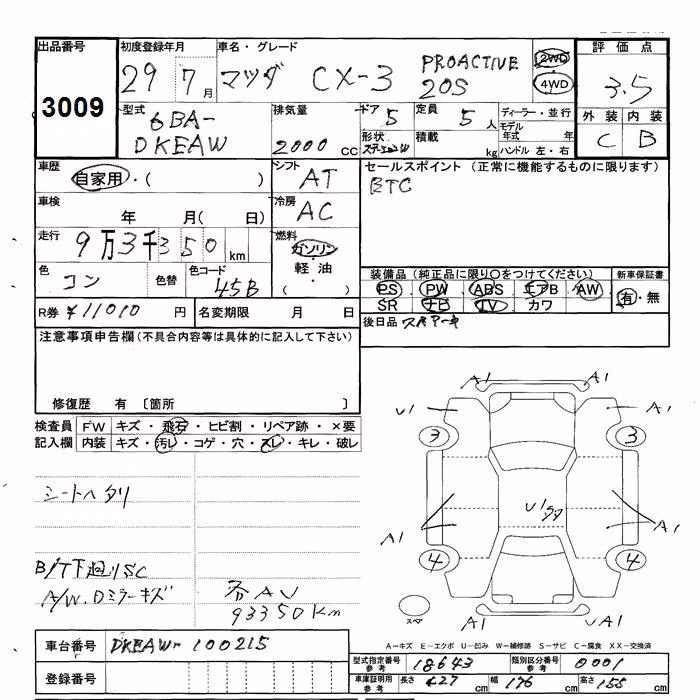 出品番号 初度登録年月 車名・グレード 評価点
3009 29 7月 マツダ CX-3 PROACTIVE 20S 2WD 4WD 3.5
外装 内装
C B
型式 排気量 ドア 5 定員 5人 ディーラー・並行
6BA-DKEAW 2000cc 形状 積載 kg モデル年式 年
ハンドル 左・右
車歴 シフト セールスポイント (正常に機能するものに限ります)
自家用・( ) AT
車検 冷房
年 月( 日) AC
走行 燃料
9万3千350km ガソリン
軽油
( )
色 コン 色替 色コード 45B
装備品(純正品に限り○をつけてください) 新車保証書
PS PW ABS エアB AW 有・無
SR ナビ TV カワ
R券 ¥11010円 名変期限 月 日
後日品
注意事項申告欄(不具合内容等は具体的に記入して下さい)
修復歴 有 〔箇所 〕
検査員 FW キズ・飛石・ヒビ割・リペア跡・×要
記入欄 内装 キズ・汚レ・コゲ・穴・スレ・キレ・破レ
シートヘタリ
B/T下廻りSC
A/W.Dミラーキズ
93350Km
A1 A1
U1 A1
3 3
A1 A1
4 4
スペア
A1 UA1
A-キズ E-エクボ U-凹み W-補修跡 S-サビ C-腐食 XX-交換済
車台番号 DKEAW-100215
登録番号
型式指定番号 参考 18643 類別区分番号 参考 0001
車庫証明用 参考 長さ 427cm 幅 176cm 高さ 155cm